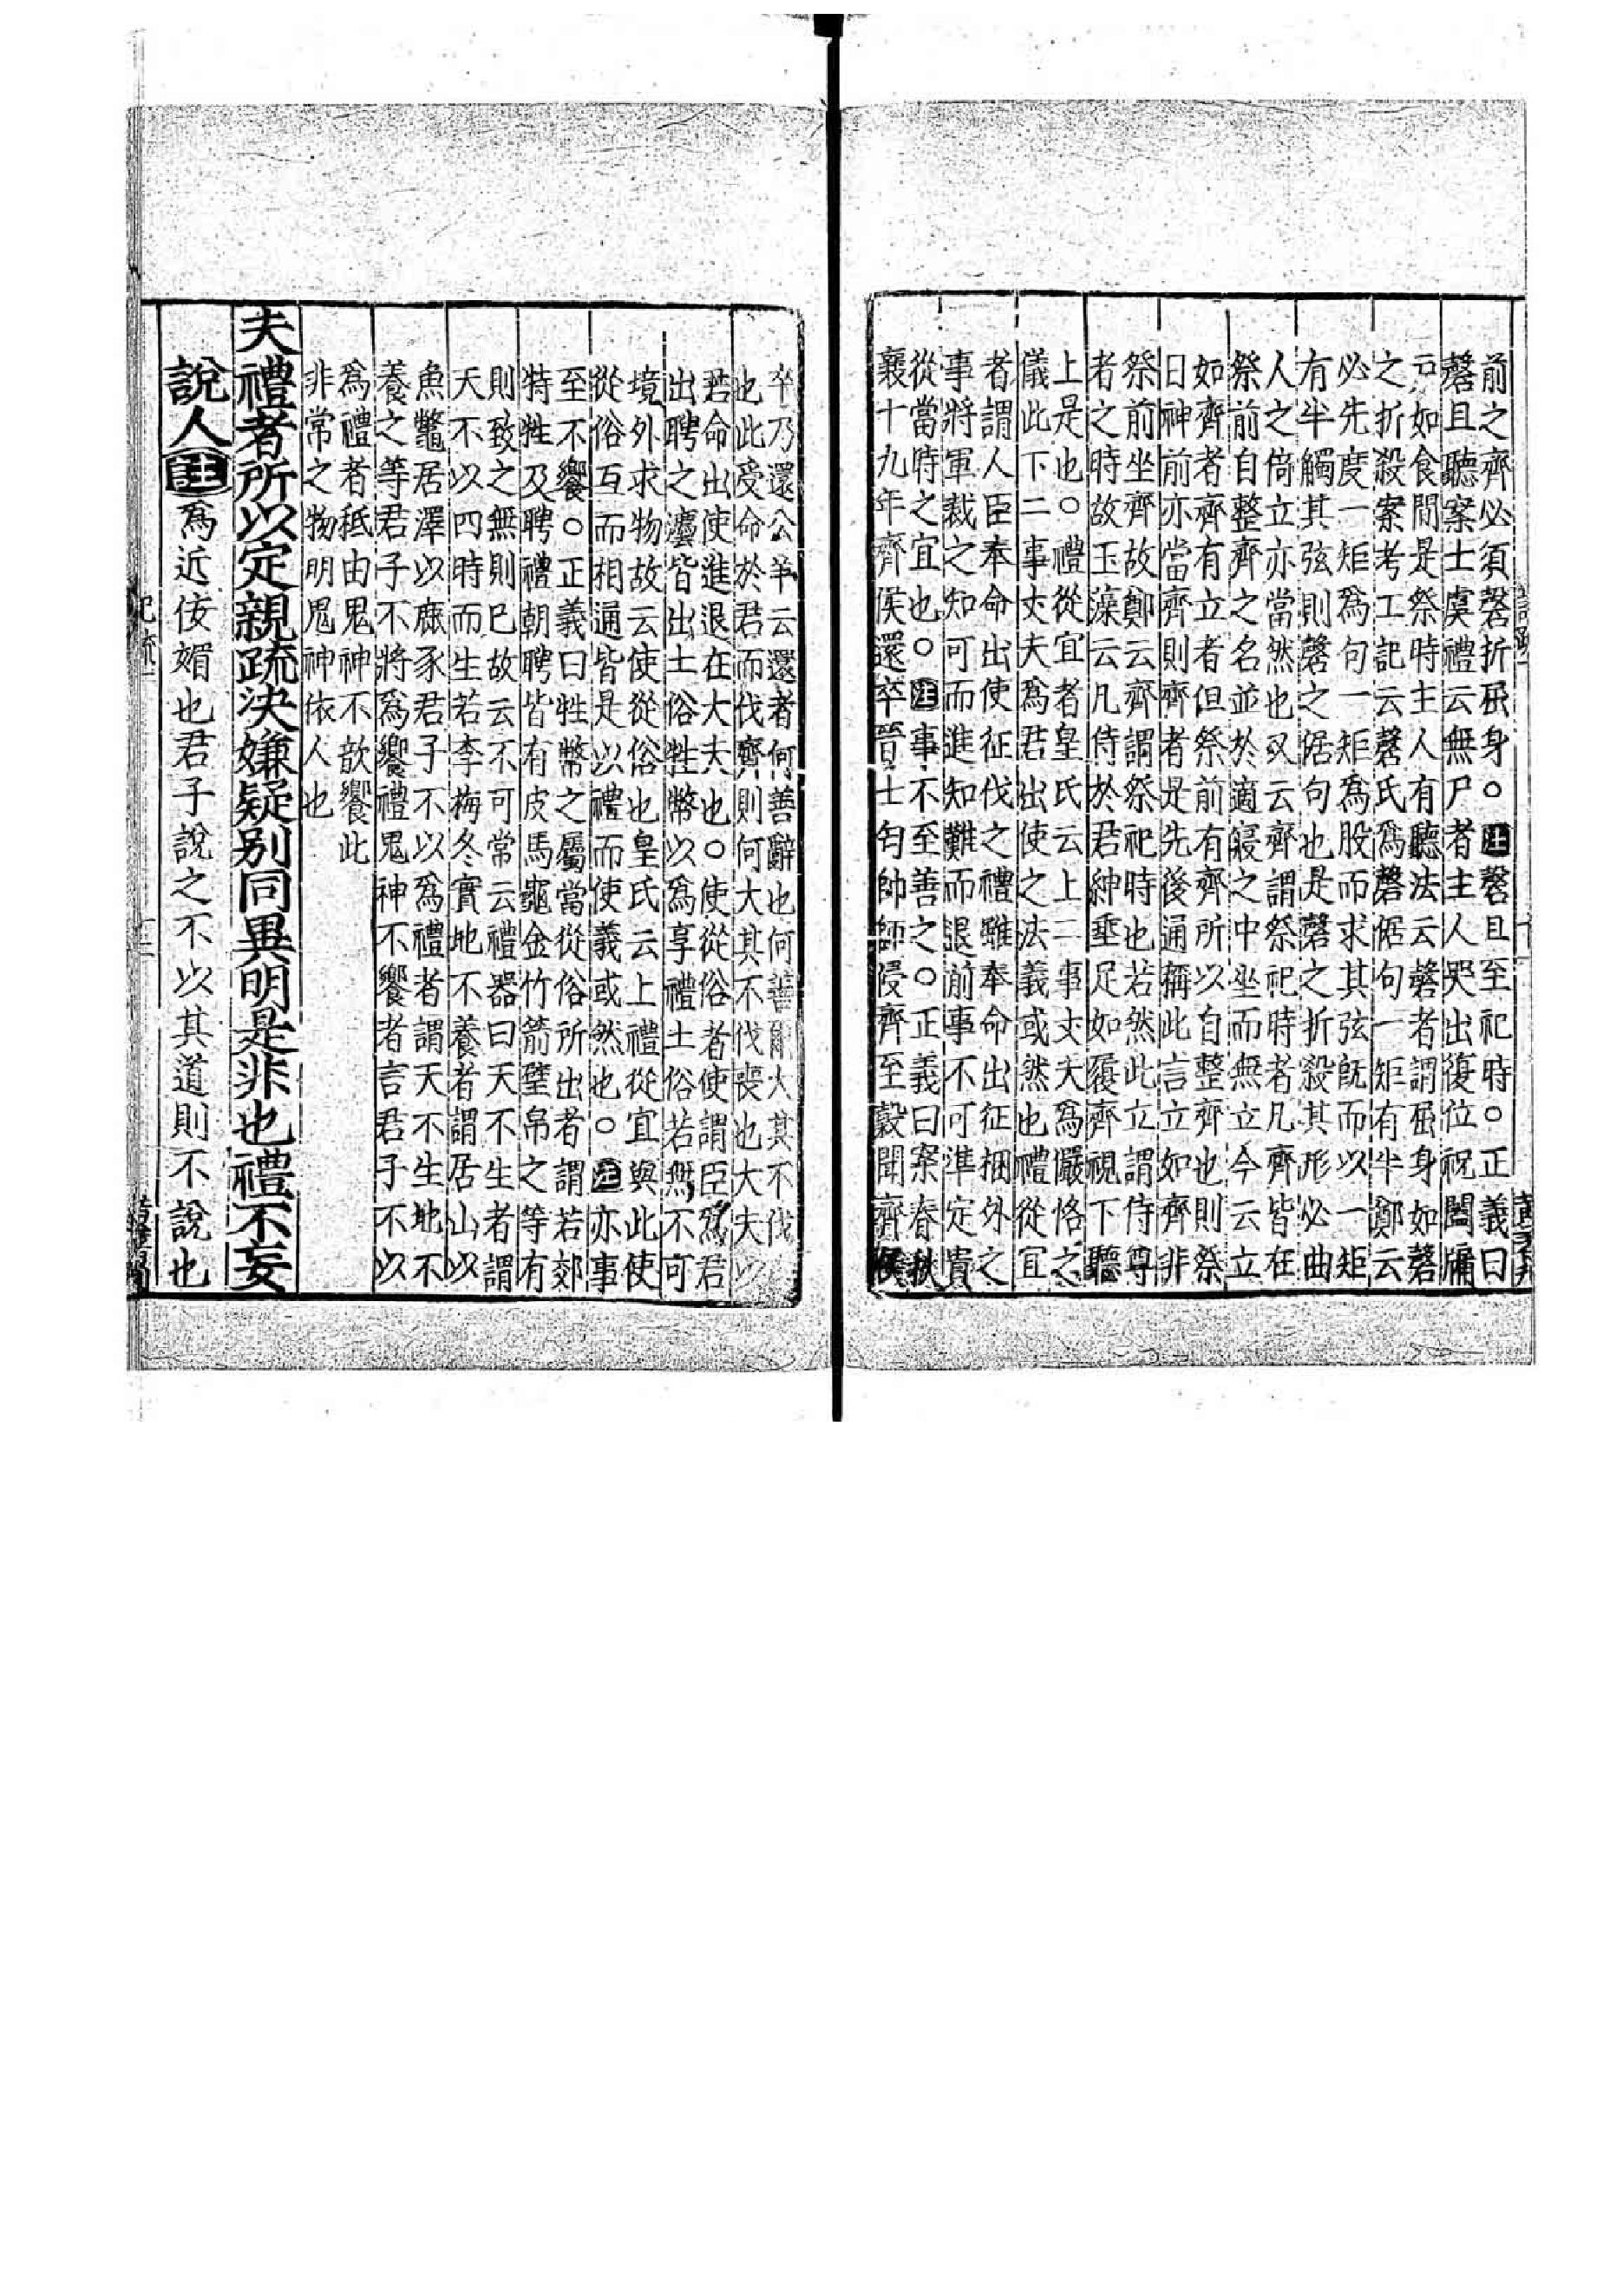 前之齊必須磬折屈身○注磬且至祀時○正義曰
磬且聽案士虞禮云無尸者主人哭出復位祝闔牖
户如食間是祭時主人有聽法云磬者謂屈身如磬
之折殺案考工記云磬氏爲磬倨句一矩有半鄭云
必先度一矩爲句一矩爲股而求其弦旣而以一矩
有半觸其弦則磬之倨句也是磬之折殺其形必曲
人之倚立亦當然也又云齊謂祭祀時者凡齊皆在
祭前自整齊之名並於適寢之中坐而無立今云立
如齊者齊有立者但祭前有齊所以自整齊也則祭
日神前亦當齊則齊者是先後通稱此言立如齊非
祭前坐齊故鄭云齊謂祭祀時也若然此立謂侍尊
者之時故玉藻云凡侍於君紳垂足如履齊視下聽
上是也○禮從宜者皇氏云上二事丈夫爲儼恪之
儀此下二事丈夫爲君出使之法義或然也禮從宜
者謂人臣奉命出使征伐之禮雖奉命出征梱外之
事將軍裁之知可而進知難而退前事不可準定貴
從當時之宜也○注事不至善之○正義曰案春秋
襄十九年齊侯還卒晉士匄帥師侵齊至穀聞齊侯
卒乃還公羊云還者何善辭也何善爾大其不伐
也此受命於君而伐齊則何大其不伐喪也大夫以
君命出使進退在大夫也○使從俗者使謂臣爲君
出聘之灋皆出土俗牲幣以爲享禮土俗若無不可
境外求物故云使從俗也皇氏云上禮從宜與此使
從俗互而相通皆是以禮而使義或然也○注亦事
至不饗○正義曰牲幣之屬當從俗所出者謂若郊
特牲及聘禮朝聘皆有皮馬龜金竹箭璧帛之等有
則致之無則已故云不可常云禮器曰天不生者謂
天不以四時而生若李梅冬實地不養者謂居山以
魚鼈居澤以鹿豕君子不以爲禮者謂天不生地不
養之等君子不將爲饗禮鬼神不饗者言君子不以
爲禮者秪由鬼神不歆饗此
非常之物明鬼神依人也
夫禮者所以定親疏決嫌疑别同異明是非也禮不妄
說人註爲近佞媚也君子說之不以其道則不說也